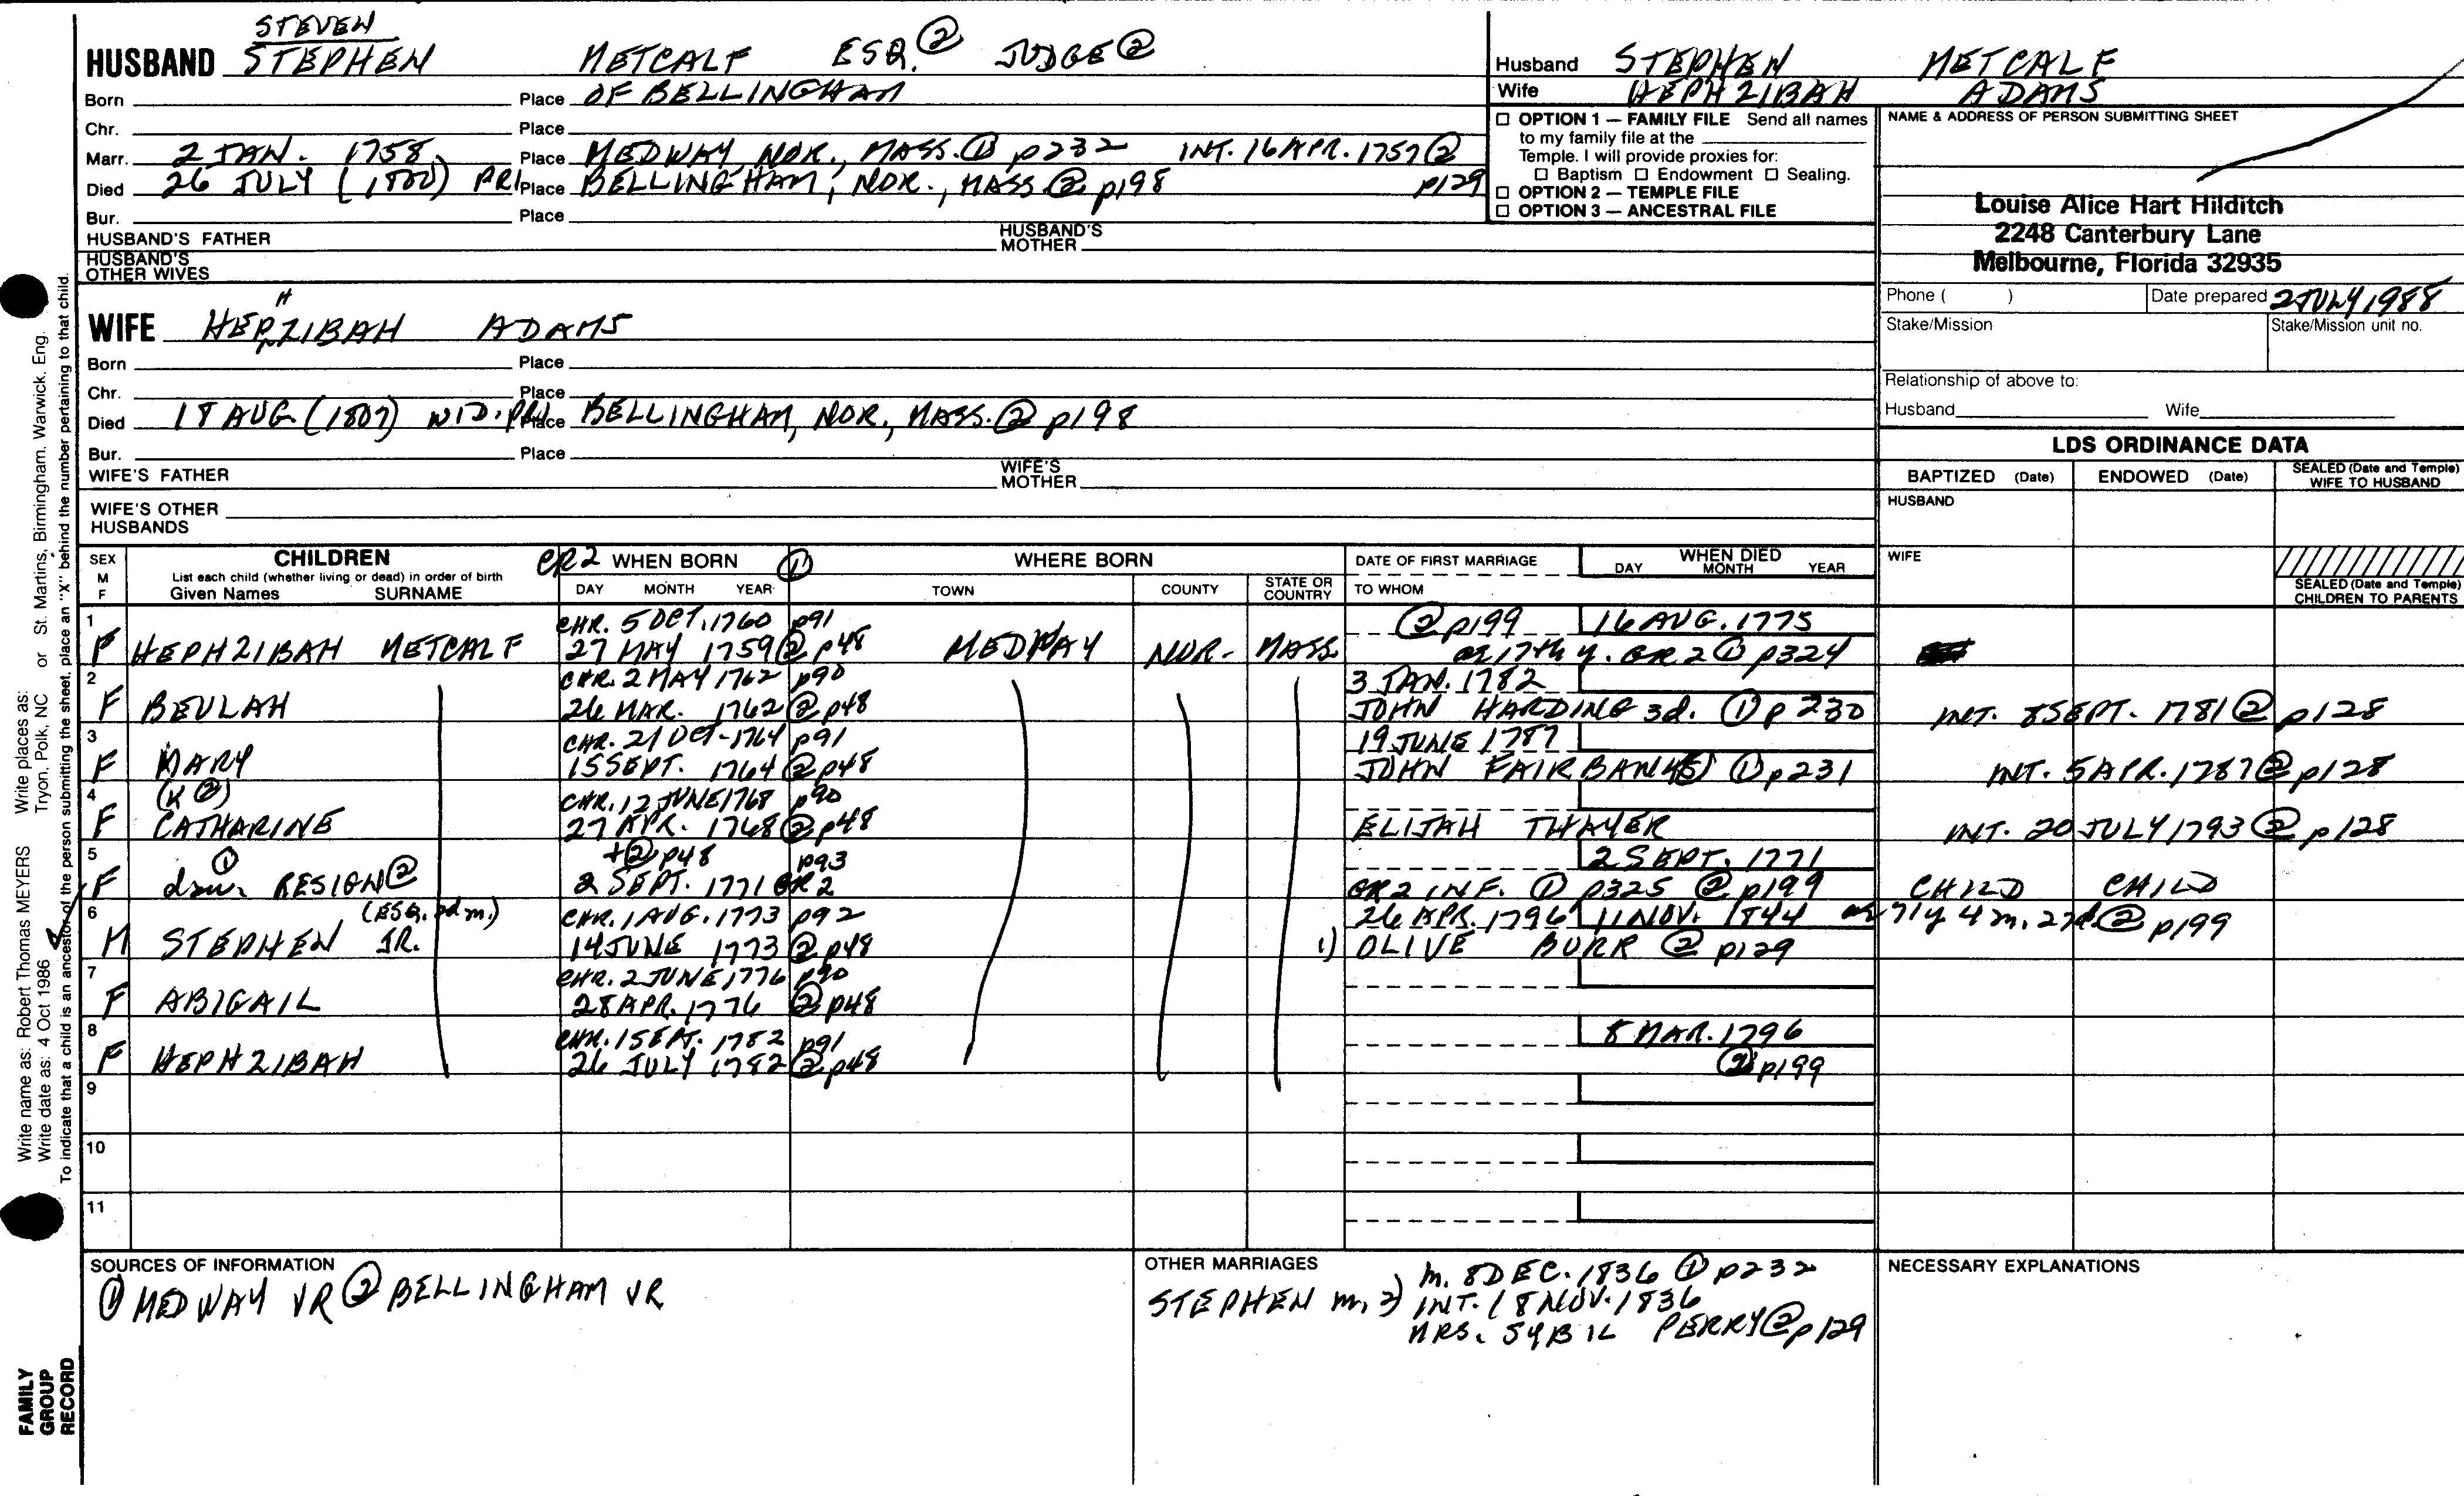 STEVEN
HUSBAND STEPHEN METCALF ESQ. ② JUDGE ②
Born Place OF BELLINGHAM
Chr. Place
Marr. 2 JAN. 1758 Place MEDWAY, NOR., MASS. ① p232 INT. 16 APR. 1757 ②
Died 26 JULY (1800) PRI Place BELLINGHAM, NOR., MASS ② p198 p129
Bur. Place
HUSBAND'S FATHER HUSBAND'S MOTHER
HUSBAND'S OTHER WIVES
H
WIFE HEPZIBAH ADAMS
Born Place
Chr. Place
Died 18 AUG. (1807) WID. PRI. Place BELLINGHAM, NOR., MASS. ② p198
Bur. Place
WIFE'S FATHER WIFE'S MOTHER
WIFE'S OTHER HUSBANDS
Husband STEPHEN METCALF
Wife HEPHZIBAH ADAMS
☐ OPTION 1 — FAMILY FILE Send all names
to my family file at the
Temple. I will provide proxies for:
☐ Baptism ☐ Endowment ☐ Sealing.
☐ OPTION 2 — TEMPLE FILE
☐ OPTION 3 — ANCESTRAL FILE
NAME & ADDRESS OF PERSON SUBMITTING SHEET
Louise Alice Hart Hilditch
2248 Canterbury Lane
Melbourne, Florida 32935
Phone ( ) Date prepared 2 JULY 1988
Stake/Mission Stake/Mission unit no.
Relationship of above to:
Husband Wife
LDS ORDINANCE DATA
BAPTIZED (Date) ENDOWED (Date) SEALED (Date and Temple) WIFE TO HUSBAND
HUSBAND
WIFE
SEALED (Date and Temple) CHILDREN TO PARENTS
SEX M F
CHILDREN
List each child (whether living or dead) in order of birth
Given Names SURNAME
CR2 WHEN BORN ① WHERE BORN
DAY MONTH YEAR TOWN COUNTY STATE OR COUNTRY
DATE OF FIRST MARRIAGE
TO WHOM
WHEN DIED
DAY MONTH YEAR
1 CHR. 5 OCT. 1760 p91 ② p199 16 AUG. 1775
F HEPHZIBAH METCALF 27 MAY 1759 ② p48 MEDWAY NOR. MASS. ae 17th y. GR2 ① p324
2 CHR. 2 MAY 1762 p90 3 JAN. 1782
F BEULAH 26 MAR. 1762 ② p48 JOHN HARDING 3d. ① p230 INT. 8 SEPT. 1781 ② p128
3 CHR. 21 OCT. 1764 p91 19 JUNE 1787
F MARY 15 SEPT. 1764 ② p48 JOHN FAIRBANK(S) ① p231 INT. 5 APR. 1787 ② p128
4 (K ②) CHR. 12 JUNE 1768 p90
F CATHARINE 27 APR. 1768 ② p48 ELIJAH THAYER INT. 20 JULY 1793 ② p128
5 ① + ② p48 p93 2 SEPT. 1771
F dau. RESIGN ② 2 SEPT. 1771 GR2 GR2 INF. ① p325 ② p199 CHILD CHILD
6 (ESQ. 2d m.) CHR. 1 AUG. 1773 p92 26 APR. 1796 11 NOV. 1844 ae 71y 4m. 27d. ② p199
M STEPHEN JR. 14 JUNE 1773 ② p48 1) OLIVE BURR ② p129
7 CHR. 2 JUNE 1776 p90
F ABIGAIL 28 APR. 1776 ② p48
8 CHR. 1 SEPT. 1782 p91 8 MAR. 1796
F HEPHZIBAH 26 JULY 1782 ② p48 ② p199
9
10
11
SOURCES OF INFORMATION
① MEDWAY VR ② BELLINGHAM VR
OTHER MARRIAGES
m. 8 DEC. 1836 ① p232
STEPHEN m. 2) INT. 18 NOV. 1836
MRS. SYBIL PERRY ② p129
NECESSARY EXPLANATIONS
Write name as: Robert Thomas MEYERS Write places as:
Write date as: 4 Oct 1986 Tryon, Polk, NC or St. Martins, Birmingham, Warwick, Eng.
To indicate that a child is an ancestor of the person submitting the sheet, place an "X" behind the number pertaining to that child.
FAMILY
GROUP
RECORD